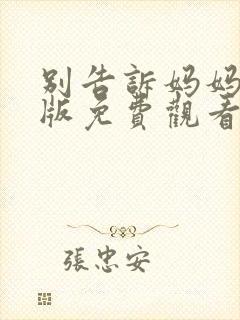 別告訴妈妈
版免費觀看
張忠安